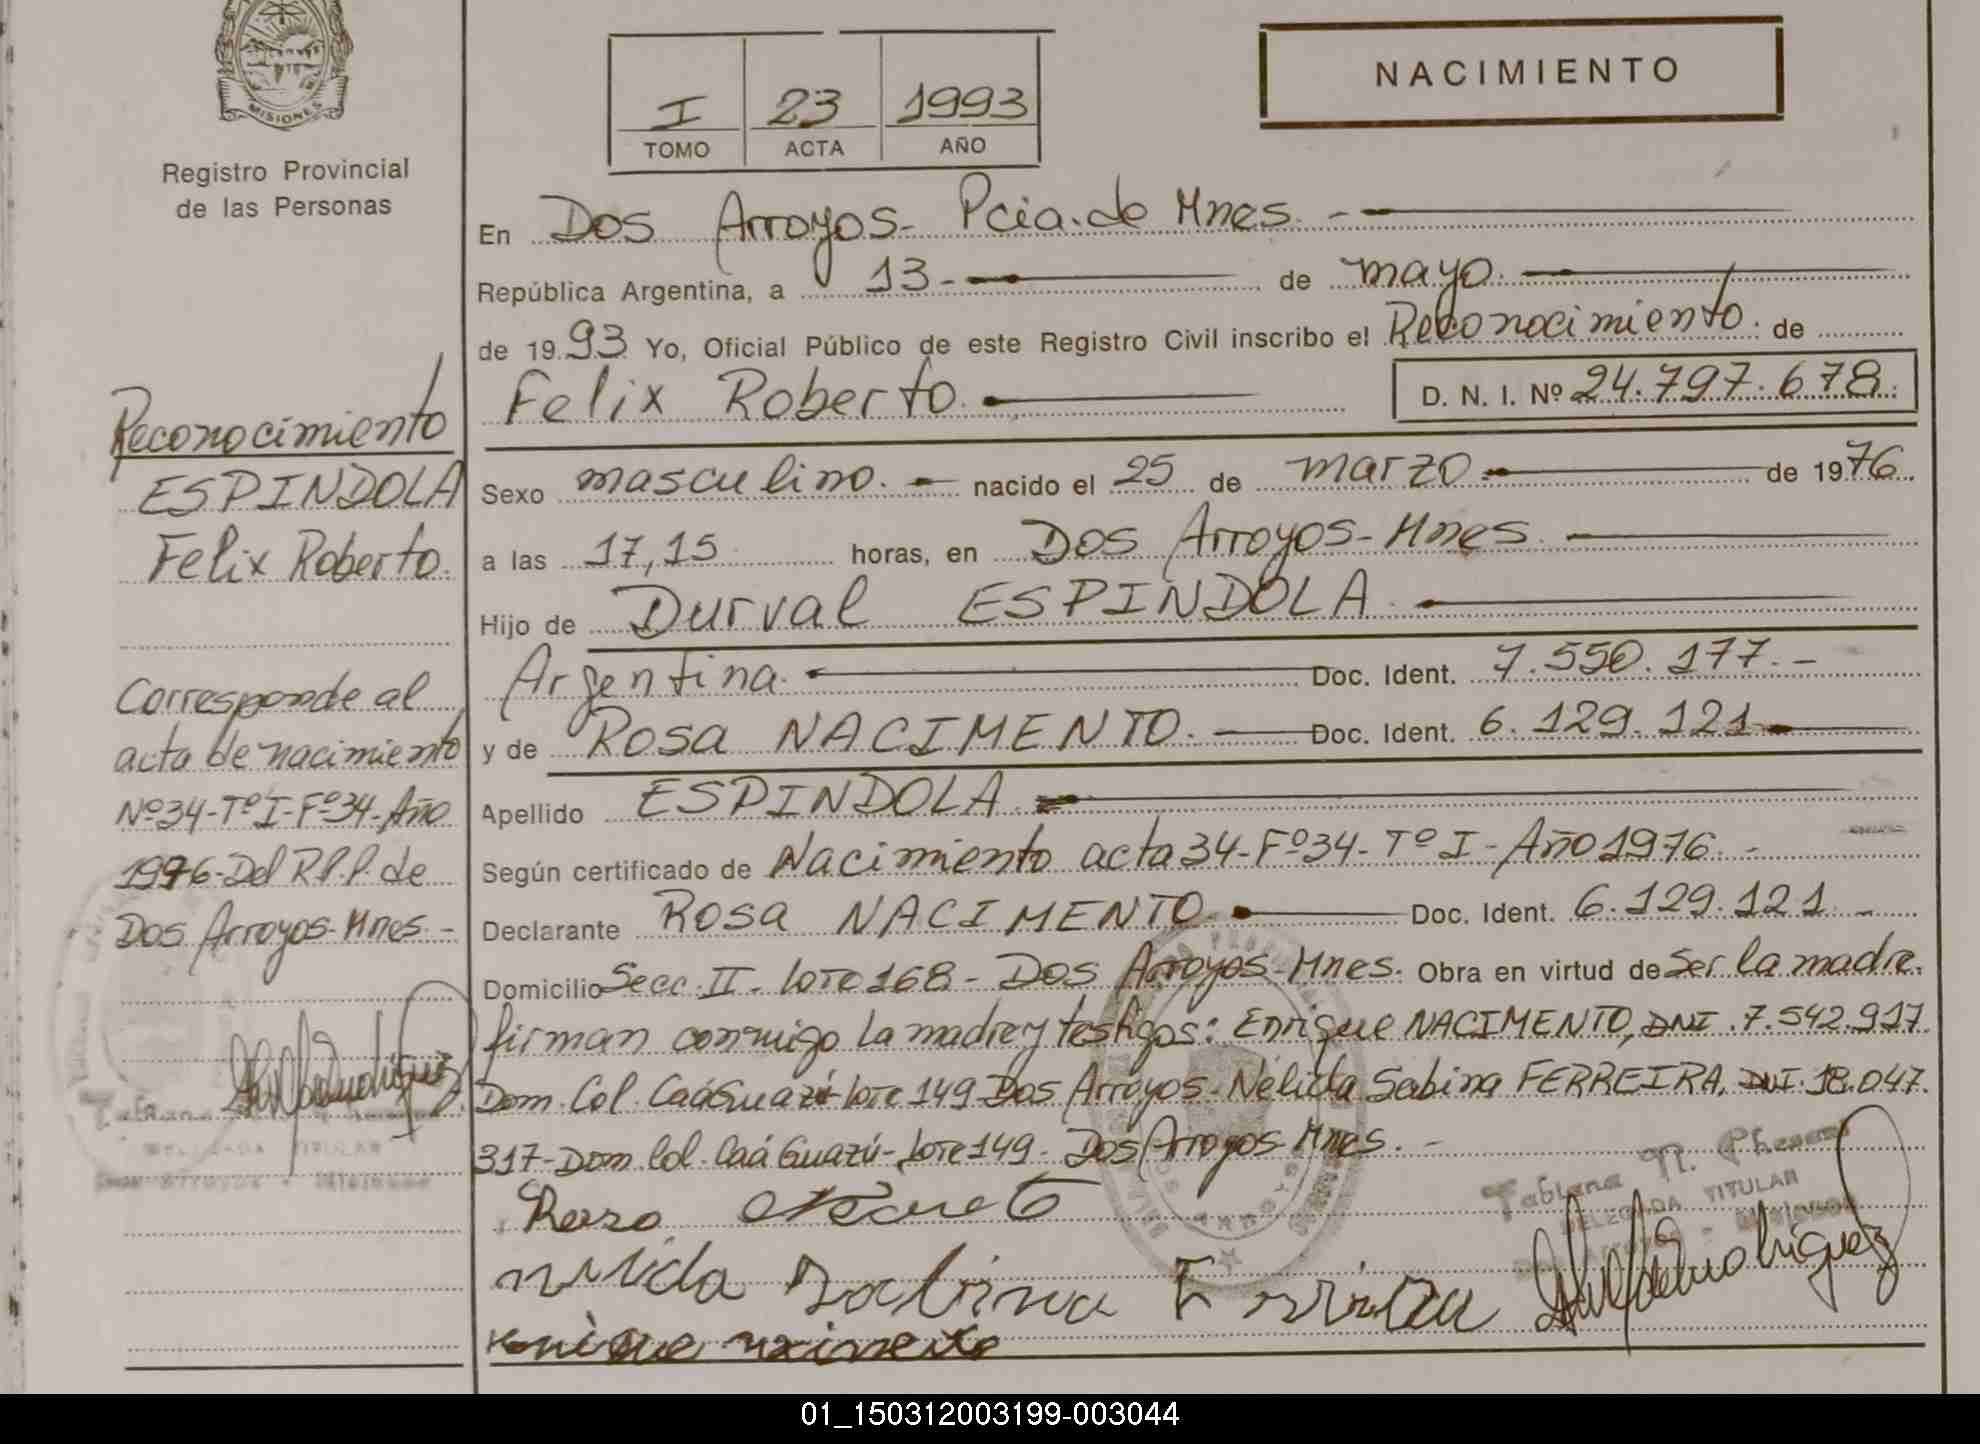 MISIONES
Registro Provincial
de las Personas
I 23 1993
TOMO ACTA AÑO
NACIMIENTO
En Dos Arroyos- Pcia. de Mnes. -
República Argentina, a 13- de mayo.
de 1993 Yo, Oficial Público de este Registro Civil inscribo el Reconocimiento. de
Felix Roberto. D. N. I. Nº 24.797.678.
Sexo masculino. - nacido el 25 de marzo de 1976.
a las 17,15 horas, en Dos Arroyos-Mnes.
Hijo de Durval ESPINDOLA.
Argentina. Doc. Ident. 7.550.177.-
y de Rosa NACIMENTO. Doc. Ident. 6.129.121
Apellido ESPINDOLA
Según certificado de Nacimiento acta 34-Fº34-Tº I-Año 1976. -
Declarante Rosa NACIMENTO. Doc. Ident. 6.129.121. -
Domicilio Secc. II. lote 168- Dos Arroyos-Mnes. Obra en virtud de Ser la madre.
firman conmigo la madre y testigos: Enrique NACIMENTO, DNI .7.542.917
Dom. Col. Caá Guazú lote 149 Dos Arroyos-Nélida Sabina FERREIRA, DNI. 18.047.
317-Dom. Col. Caá Guazú-Lote 149- Dos Arroyos Mnes. -
Reconocimiento
ESPINDOLA
Felix Roberto.
Corresponde al
acta de nacimiento
Nº34-TºI-Fº34-Año
1976-Del R.P.P. de
Dos Arroyos-Mnes -
Rosa
Fabiana N.
DELEGADA TITULAR
Dos Arroyos - Misiones
Fabiana
DELEGADA TITULAR
Dos Arroyos - Misiones
nelida Sabina
01_150312003199-003044